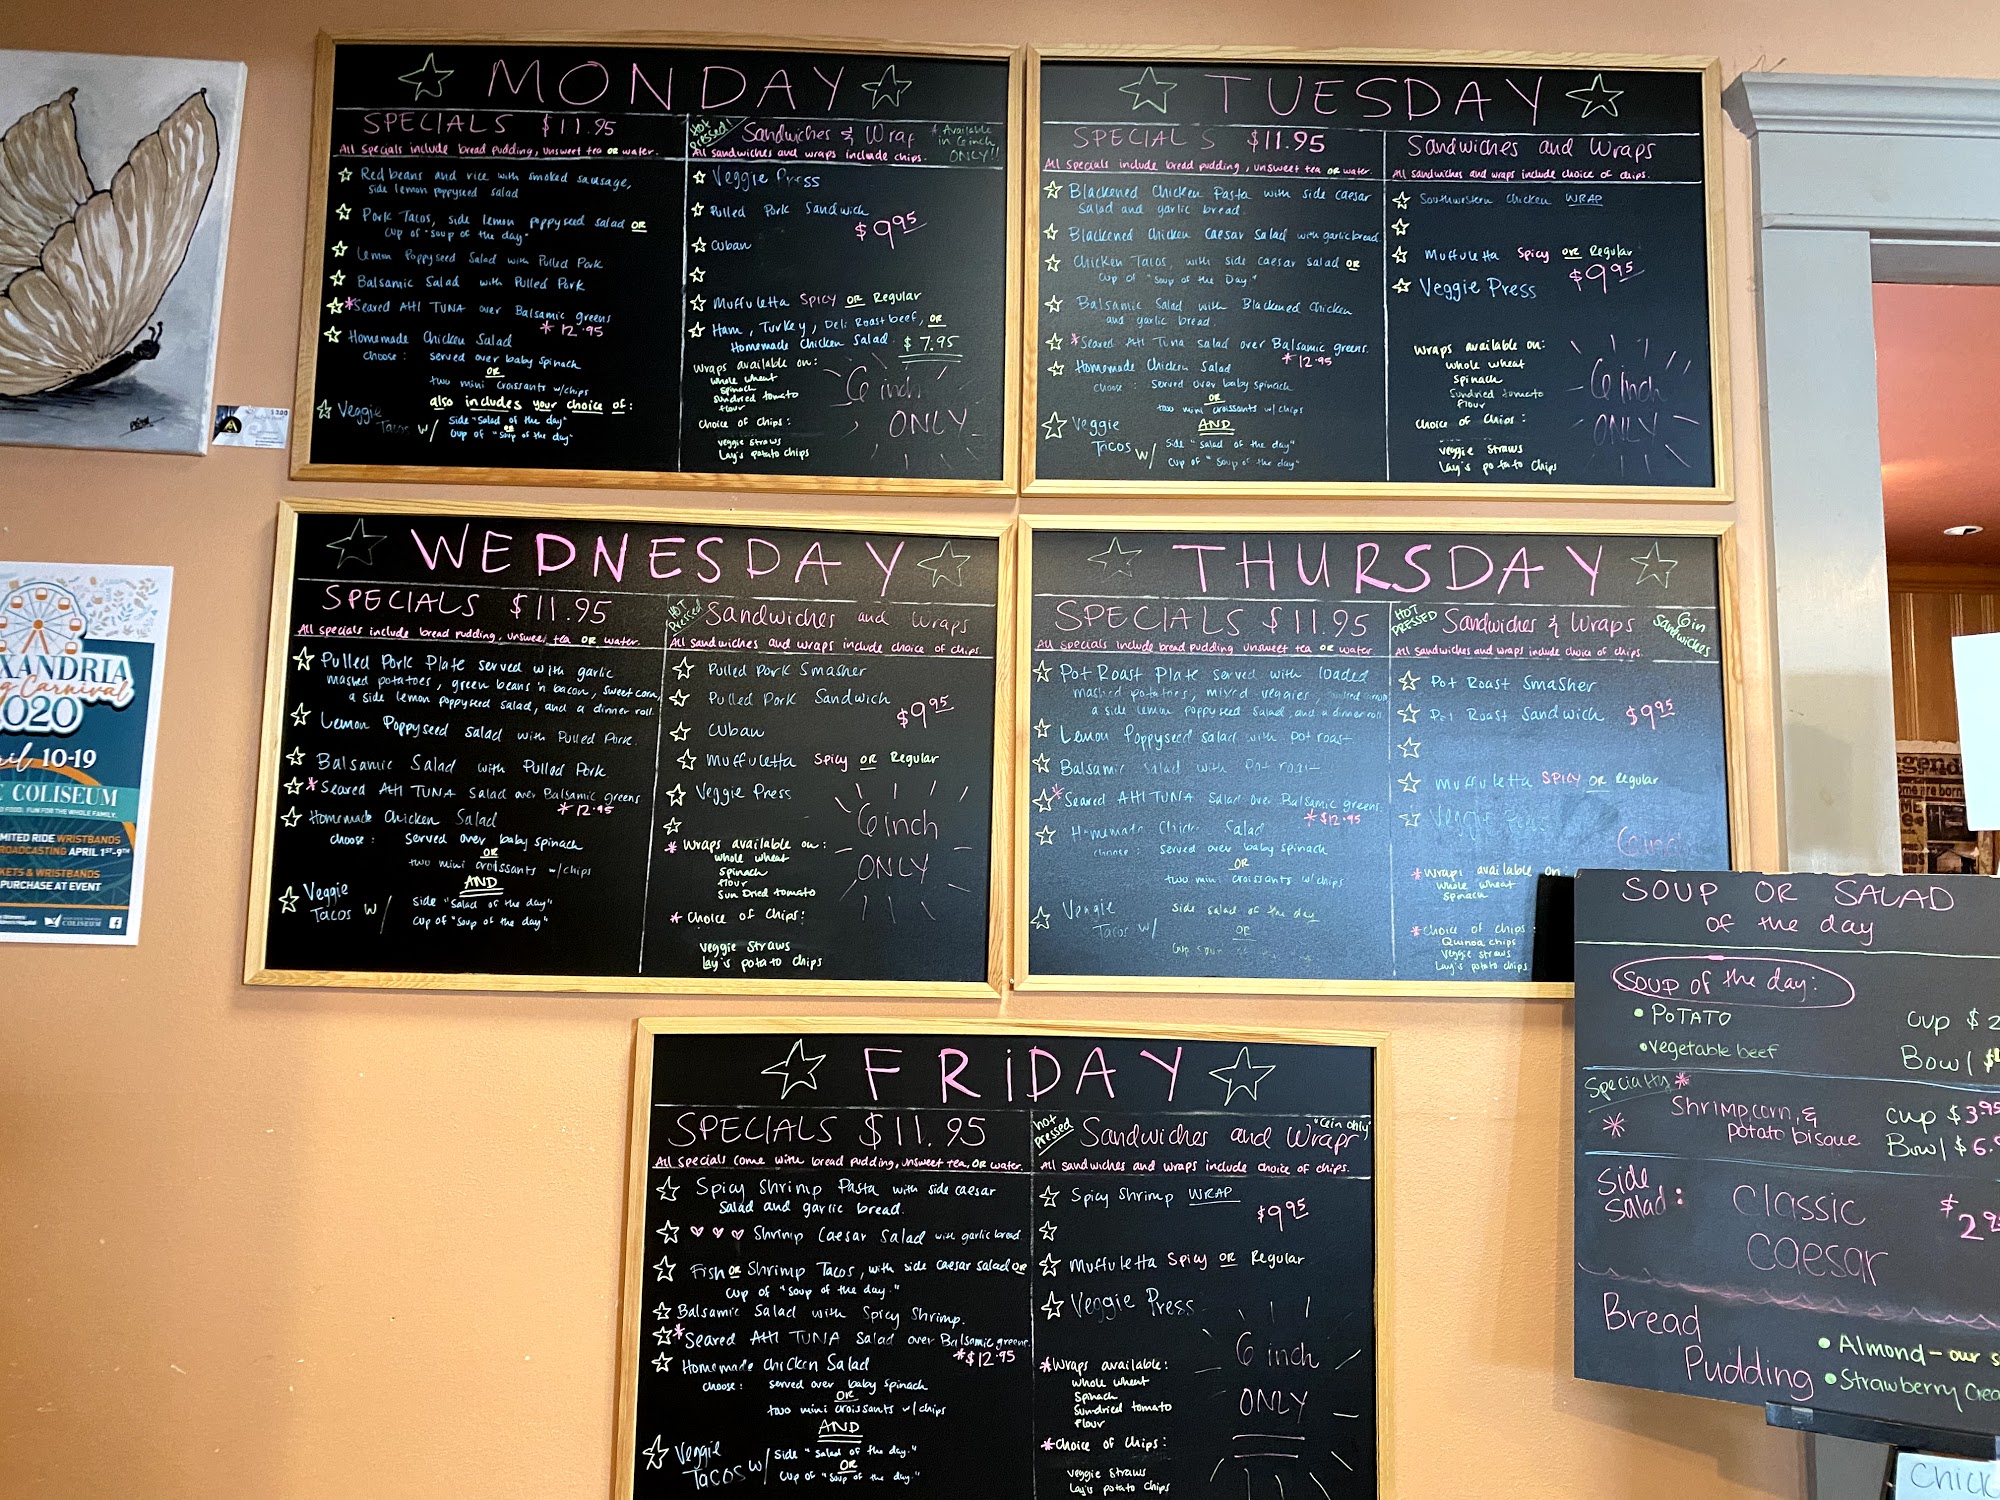 MONDAY
SPECIALS $11.95
All specials include bread pudding, unsweet tea OR water.
Red beans and rice with smoked sausage,
side lemon poppyseed salad
Pork Tacos, side lemon poppyseed salad OR
cup of "soup of the day"
Lemon Poppyseed Salad with Pulled Pork
Balsamic Salad with Pulled Pork
*Seared AHI TUNA over Balsamic greens
* 12.95
Homemade Chicken Salad
choose: served over baby spinach
OR
two mini croissants w/chips
also includes your choice of:
Veggie Tacos w/
side "Salad of the day"
OR
cup of "soup of the day"
Hot Pressed!
Sandwiches & Wrap
* Available in 6inch ONLY!!
All sandwiches and wraps include chips.
Veggie Press
Pulled Pork Sandwich
$9.95
Cuban
Muffuletta SPICY OR Regular
Ham, Turkey, Deli Roast beef, OR
Homemade Chicken Salad $7.95
Wraps available on:
whole wheat
spinach
sundried tomato
flour
choice of chips:
veggie straws
Lay's potato chips
6 inch
ONLY
TUESDAY
SPECIALS $11.95
All specials include bread pudding, unsweet tea OR water.
Blackened Chicken Pasta with side caesar
salad and garlic bread.
Blackened Chicken Caesar Salad with garlic bread
Chicken Tacos, with side caesar salad OR
cup of "Soup of the Day"
Balsamic Salad with Blackened Chicken
and garlic bread.
*Seared AHI Tuna salad over Balsamic greens.
* 12.95
Homemade Chicken Salad
choose: served over baby spinach
OR
two mini croissants w/chips
AND
Veggie Tacos w/
side "salad of the day"
cup of "soup of the day"
Sandwiches and Wraps
All sandwiches and wraps include choice of chips.
Southwestern Chicken WRAP
Muffuletta Spicy OR Regular
$9.95
Veggie Press
Wraps available on:
whole wheat
spinach
sundried tomato
flour
choice of chips:
veggie straws
Lay's potato chips
6 inch
ONLY
WEDNESDAY
SPECIALS $11.95
All specials include bread pudding, unsweet tea OR water.
Pulled Pork Plate served with garlic
mashed potatoes, green beans 'n bacon, sweet corn,
a side lemon poppyseed salad, and a dinner roll.
Lemon Poppyseed salad with Pulled Pork.
Balsamic Salad with Pulled Pork
*Seared AHI TUNA Salad over Balsamic greens
* 12.95
Homemade Chicken Salad
choose: served over baby spinach
OR
two mini croissants w/chips
AND
Veggie Tacos w/
side "Salad of the day"
cup of "soup of the day"
HOT Pressed
Sandwiches and Wraps
All sandwiches and wraps include choice of chips.
Pulled Pork Smasher
Pulled Pork Sandwich
$9.95
Cuban
Muffuletta Spicy OR Regular
Veggie Press
* Wraps available on:
whole wheat
spinach
flour
Sun Dried tomato
* choice of chips:
veggie straws
lay's potato chips
6 inch
ONLY
THURSDAY
SPECIALS $11.95
All specials include bread pudding unsweet tea OR water
Pot Roast Plate served with loaded
mashed potatoes, mixed veggies,
a side lemon poppyseed salad, and a dinner roll
Lemon Poppyseed salad with pot roast
Balsamic salad with Pot roast
*Seared AHI TUNA Salad over Balsamic greens.
* $12.95
Homemade Chicken Salad
choose: served over baby spinach
OR
two mini croissants w/chips
Veggie Tacos w/
side salad of the day
OR
cup soup
HOT PRESSED
Sandwiches & Wraps
6in Sandwiches
All sandwiches and wraps include choice of chips.
Pot Roast Smasher
Pot Roast Sandwich $9.95
Muffuletta SPICY OR Regular
Veggie Press
* Wraps available on:
whole wheat
spinach
* choice of chips:
Quinoa chips
veggie straws
Lay's potato chips
FRiDAY
SPECIALS $11.95
All specials come with bread pudding, unsweet tea, OR water.
Spicy Shrimp Pasta with side caesar
salad and garlic bread.
Shrimp Caesar Salad with garlic bread
Fish OR Shrimp Tacos, with side caesar salad OR
cup of "soup of the day."
Balsamic Salad with Spicy Shrimp.
*Seared AHI TUNA Salad over Balsamic greens
* $12.95
Homemade Chicken Salad
choose: served over baby spinach
OR
two mini croissants w/chips
AND
Veggie Tacos w/
side "salad of the day."
OR
cup of "soup of the day."
hot pressed
Sandwiches and Wraps
"6in only"
All sandwiches and wraps include choice of chips.
Spicy Shrimp WRAP
$9.95
Muffuletta Spicy OR Regular
Veggie Press
*Wraps available:
whole wheat
Spinach
Sundried tomato
flour
*choice of chips:
veggie straws
Lay's potato chips
6 inch
ONLY
SOUP OR SALAD
of the day
SOUP of the day:
• POTATO
• vegetable beef
cup $2
Bowl $
Specialty *
* Shrimp, corn, &
potato bisque
cup $3.95
Bowl $6.
Side Salad:
Classic
Caesar
$2.9
Bread
Pudding
• Almond - our s
• Strawberry Crea
Chick
XANDRIA
g Carnival
2020
ril 10-19
C COLISEUM
FOOD. FUN FOR THE WHOLE FAMILY.
MITED RIDE WRISTBANDS
ROADCASTING APRIL 1ST-9TH
KETS & WRISTBANDS
PURCHASE AT EVENT
COLISEUM
egend